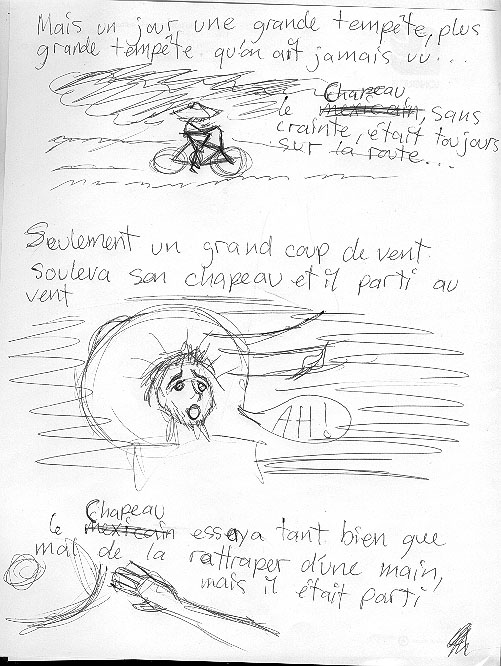 Mais un jour, une grande tempête, plus
grande tempête qu'on ait jamais vu...
Chapeau
le mexicain, sans
crainte, était toujours
sur la route...
Seulement un grand coup de vent
souleva son chapeau et il parti au
vent
AH!
Chapeau
le mexicain essaya tant bien que
mal de la rattraper d'une main,
mais il était parti